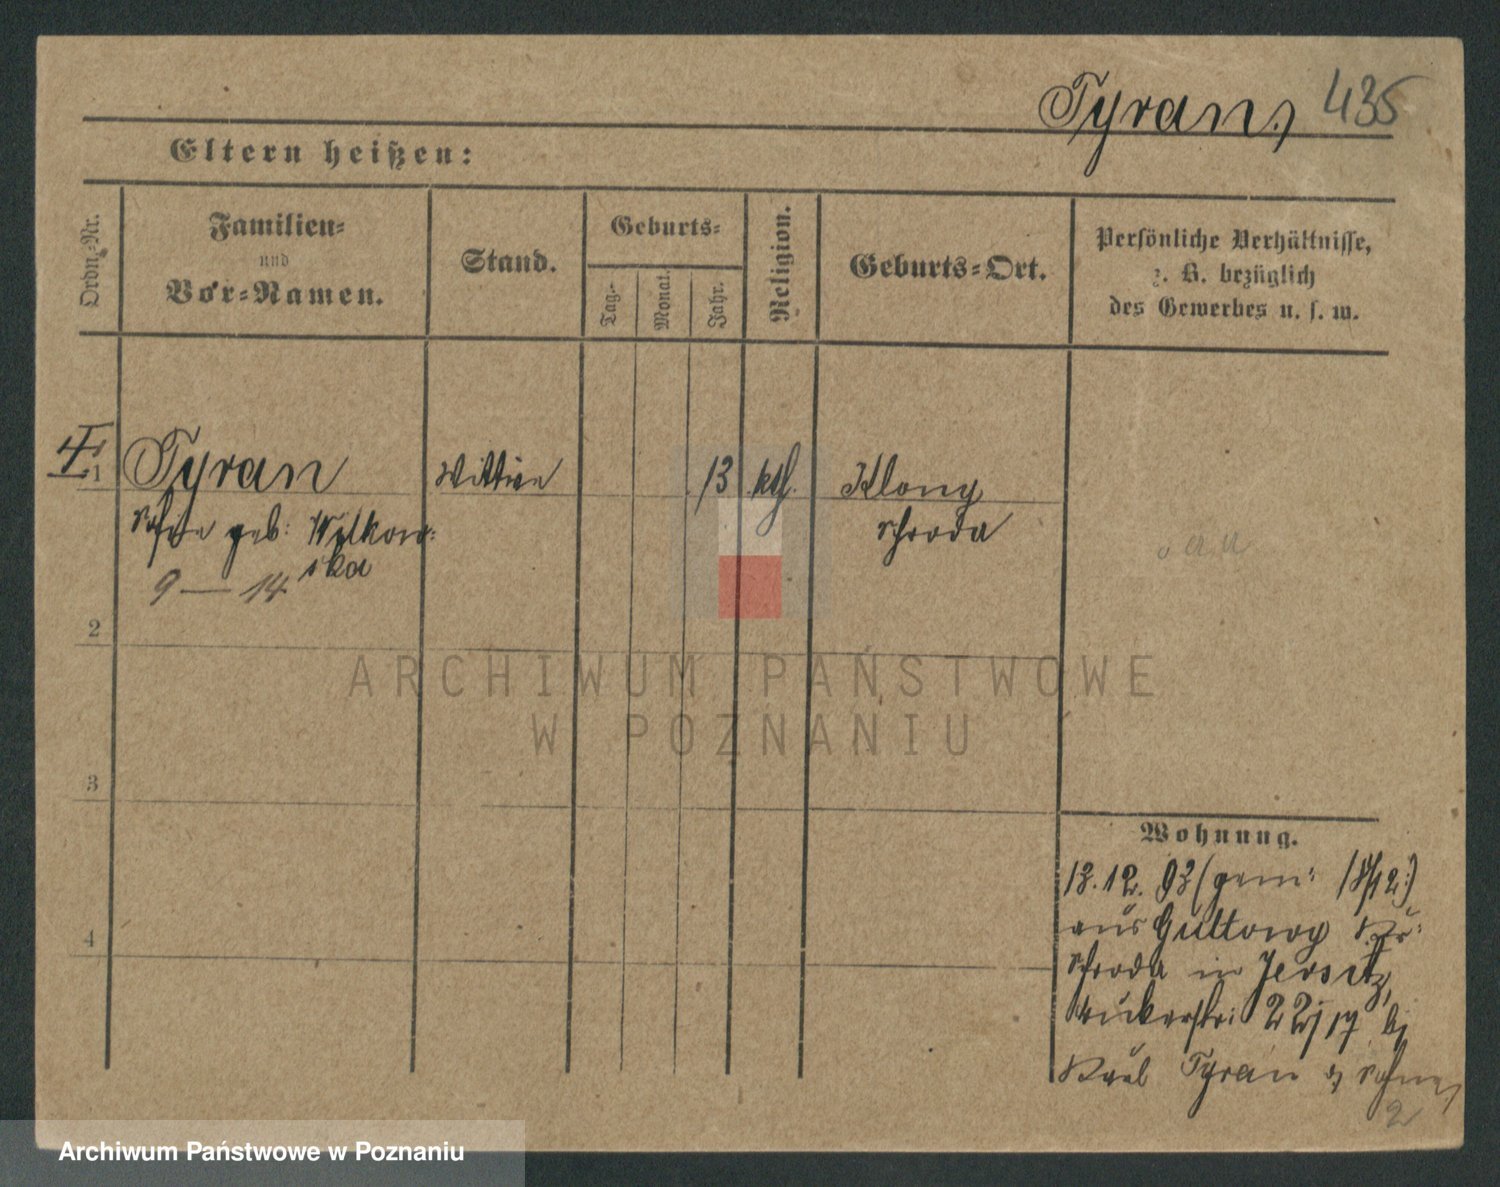 Tyran, 435
Eltern heißen:
Ordn.-Nr.
Familien-
und
Vor-Namen.
Stand.
Geburts-
Tag.
Monat.
Jahr.
Religion.
Geburts-Ort.
Persönliche Verhältnisse,
z. B. bezüglich
des Gewerbes u. s. w.
1 Tyran Wittwe 13 kth. Klony
geb: Wilkow-
ska Schroda
9 — 14
2
3
4
Wohnung.
13.12.93 (gem: 18/12.)
aus Gultowy Kr:
Schroda in Jersitz,
22/17 bei
Tyran
2
ARCHIWUM PAŃSTWOWE
W POZNANIU
Archiwum Państwowe w Poznaniu